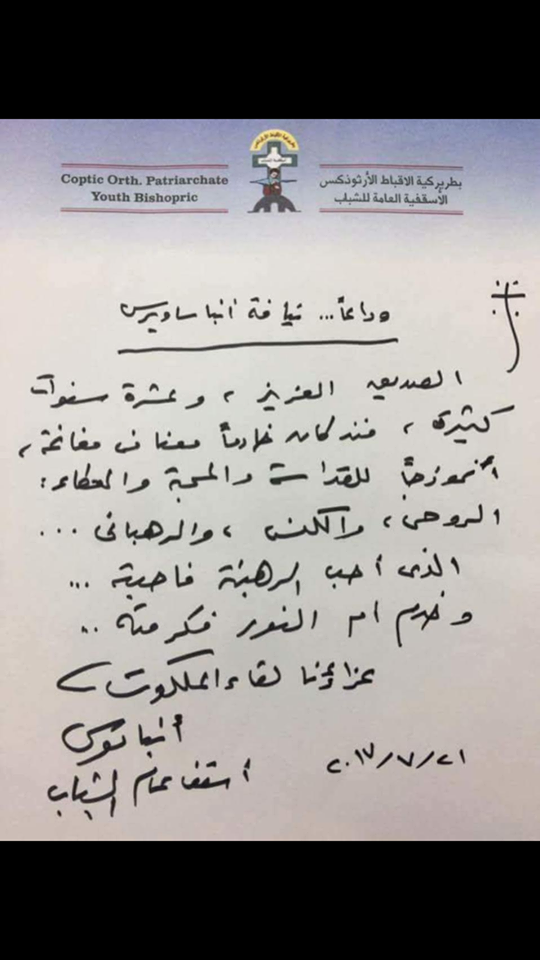 Coptic Orth. Patriarchate
Youth Bishopric
بطريركية الاقباط الأرثوذكس
الأسقفية العامة للشباب
وداعاً... نيافة أنبا ساويرس
الصديق العزيز، وعشرة سنوات
كثيرة، منذ كان خادماً معنا فى مغاغة،
أنموذجاً للقداسة والمحبة والعطاء:
الروحى، والكنسى، والرهبانى ...
الذى أحب الرهبنة فأحبته ...
وخدم أم النور فكرمته ..
عزاؤنا لقاء الملكوت
أنبا موسى
أسقف عام الشباب
٢٠١٧/٧/٢١